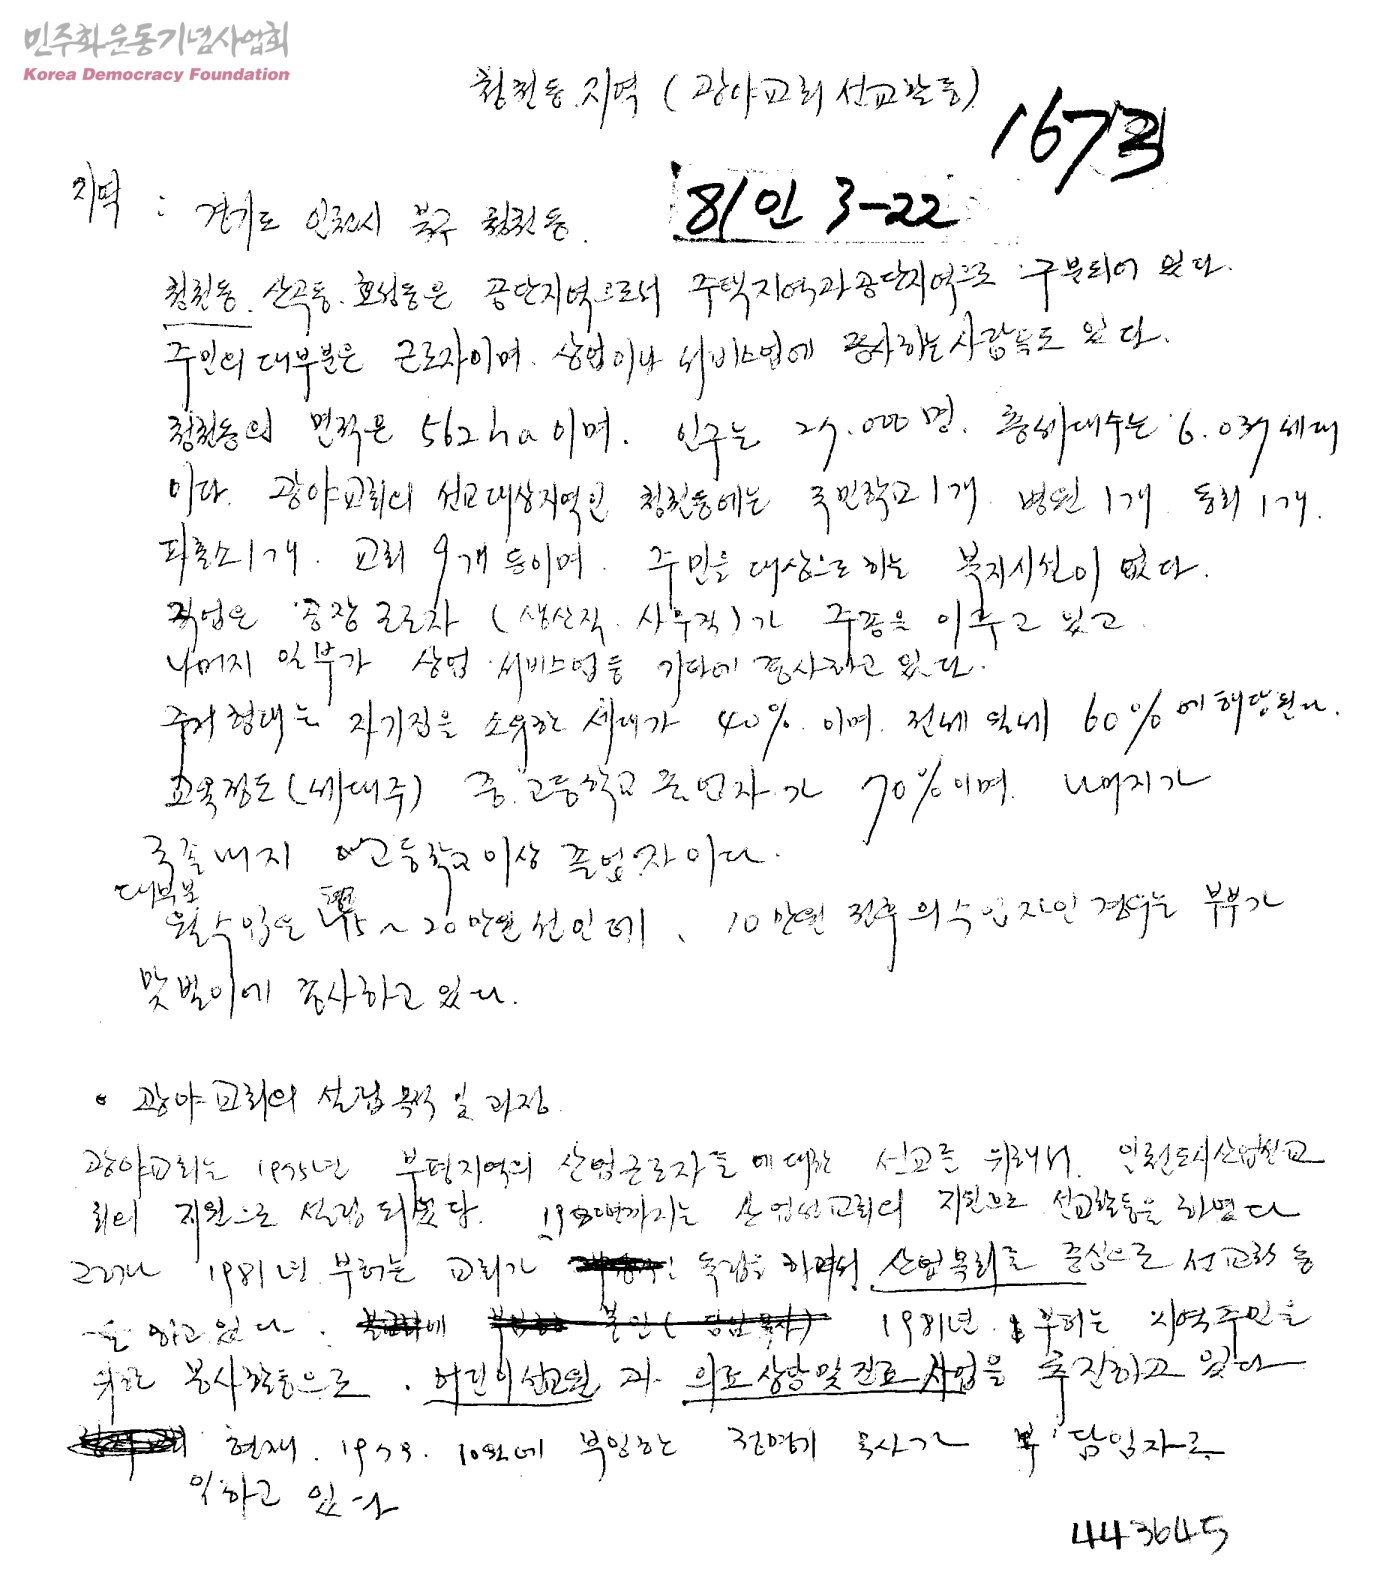 민주화운동기념사업회
Korea Democracy Foundation
청천동.지역 (광야교회 선교활동)
167쪽
81인 3-22
지역 : 경기도 인천시 북구 청천동.
청천동. 산곡동. 효성동은 공단지역으로서 주택지역과 공단지역으로 구분되어 있다.
주민의 대부분은 근로자이며. 상업이나 서비스업에 종사하는 사람들도 있다.
청천동의 면적은 562ha이며. 인구는 27.000명. 총세대수는 6.037세대
이다. 광야교회의 선교대상지역인 청천동에는 국민학교 1개. 병원 1개. 동회 1개.
파출소 1개. 교회 9개 등이며. 주민을 대상으로 하는 복지시설이 없다.
직업은 공장 근로자 (생산직. 사무직)가 주종을 이루고 있고.
나머지 일부가 상업. 서비스업등 기타에 종사하고 있다.
주거형태는 자기집을 소유한 세대가 40%. 이며. 전세 월세 60%에 해당된다.
교육정도(세대주) 중.고등학교 졸업자가 70%이며. 나머지가
국졸 내지 고등학교이상 졸업자이다.
대부분
월수입은 15~20만원선인데, 10만원 전후의 수입자인 경우는 부부가
맞벌이에 종사하고 있다.
• 광야교회의 설립목적 및 과정.
광야교회는 1975년 부평지역의 산업근로자들에 대한 선교를 위해서. 인천도시산업선교
회의 지원으로 설립되었다. 1980년까지는 산업선교회의 지원으로 선교활동을 하였다
그러나 1981년 부터는 교회가 독립을 하면서 산업목회를 중심으로 선교활동
을 하고 있다. 1981년. 부터는 지역주민을
위한 봉사활동으로. 어린이선교원 과 의료상담 및 진료 사업을 추진하고 있다
현재. 1979. 10월에 부임한 전영기 목사가 담임자로
일하고 있다
443645